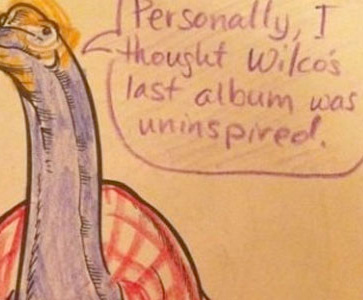 Personally, I
thought Wilco's
last album was
uninspired.